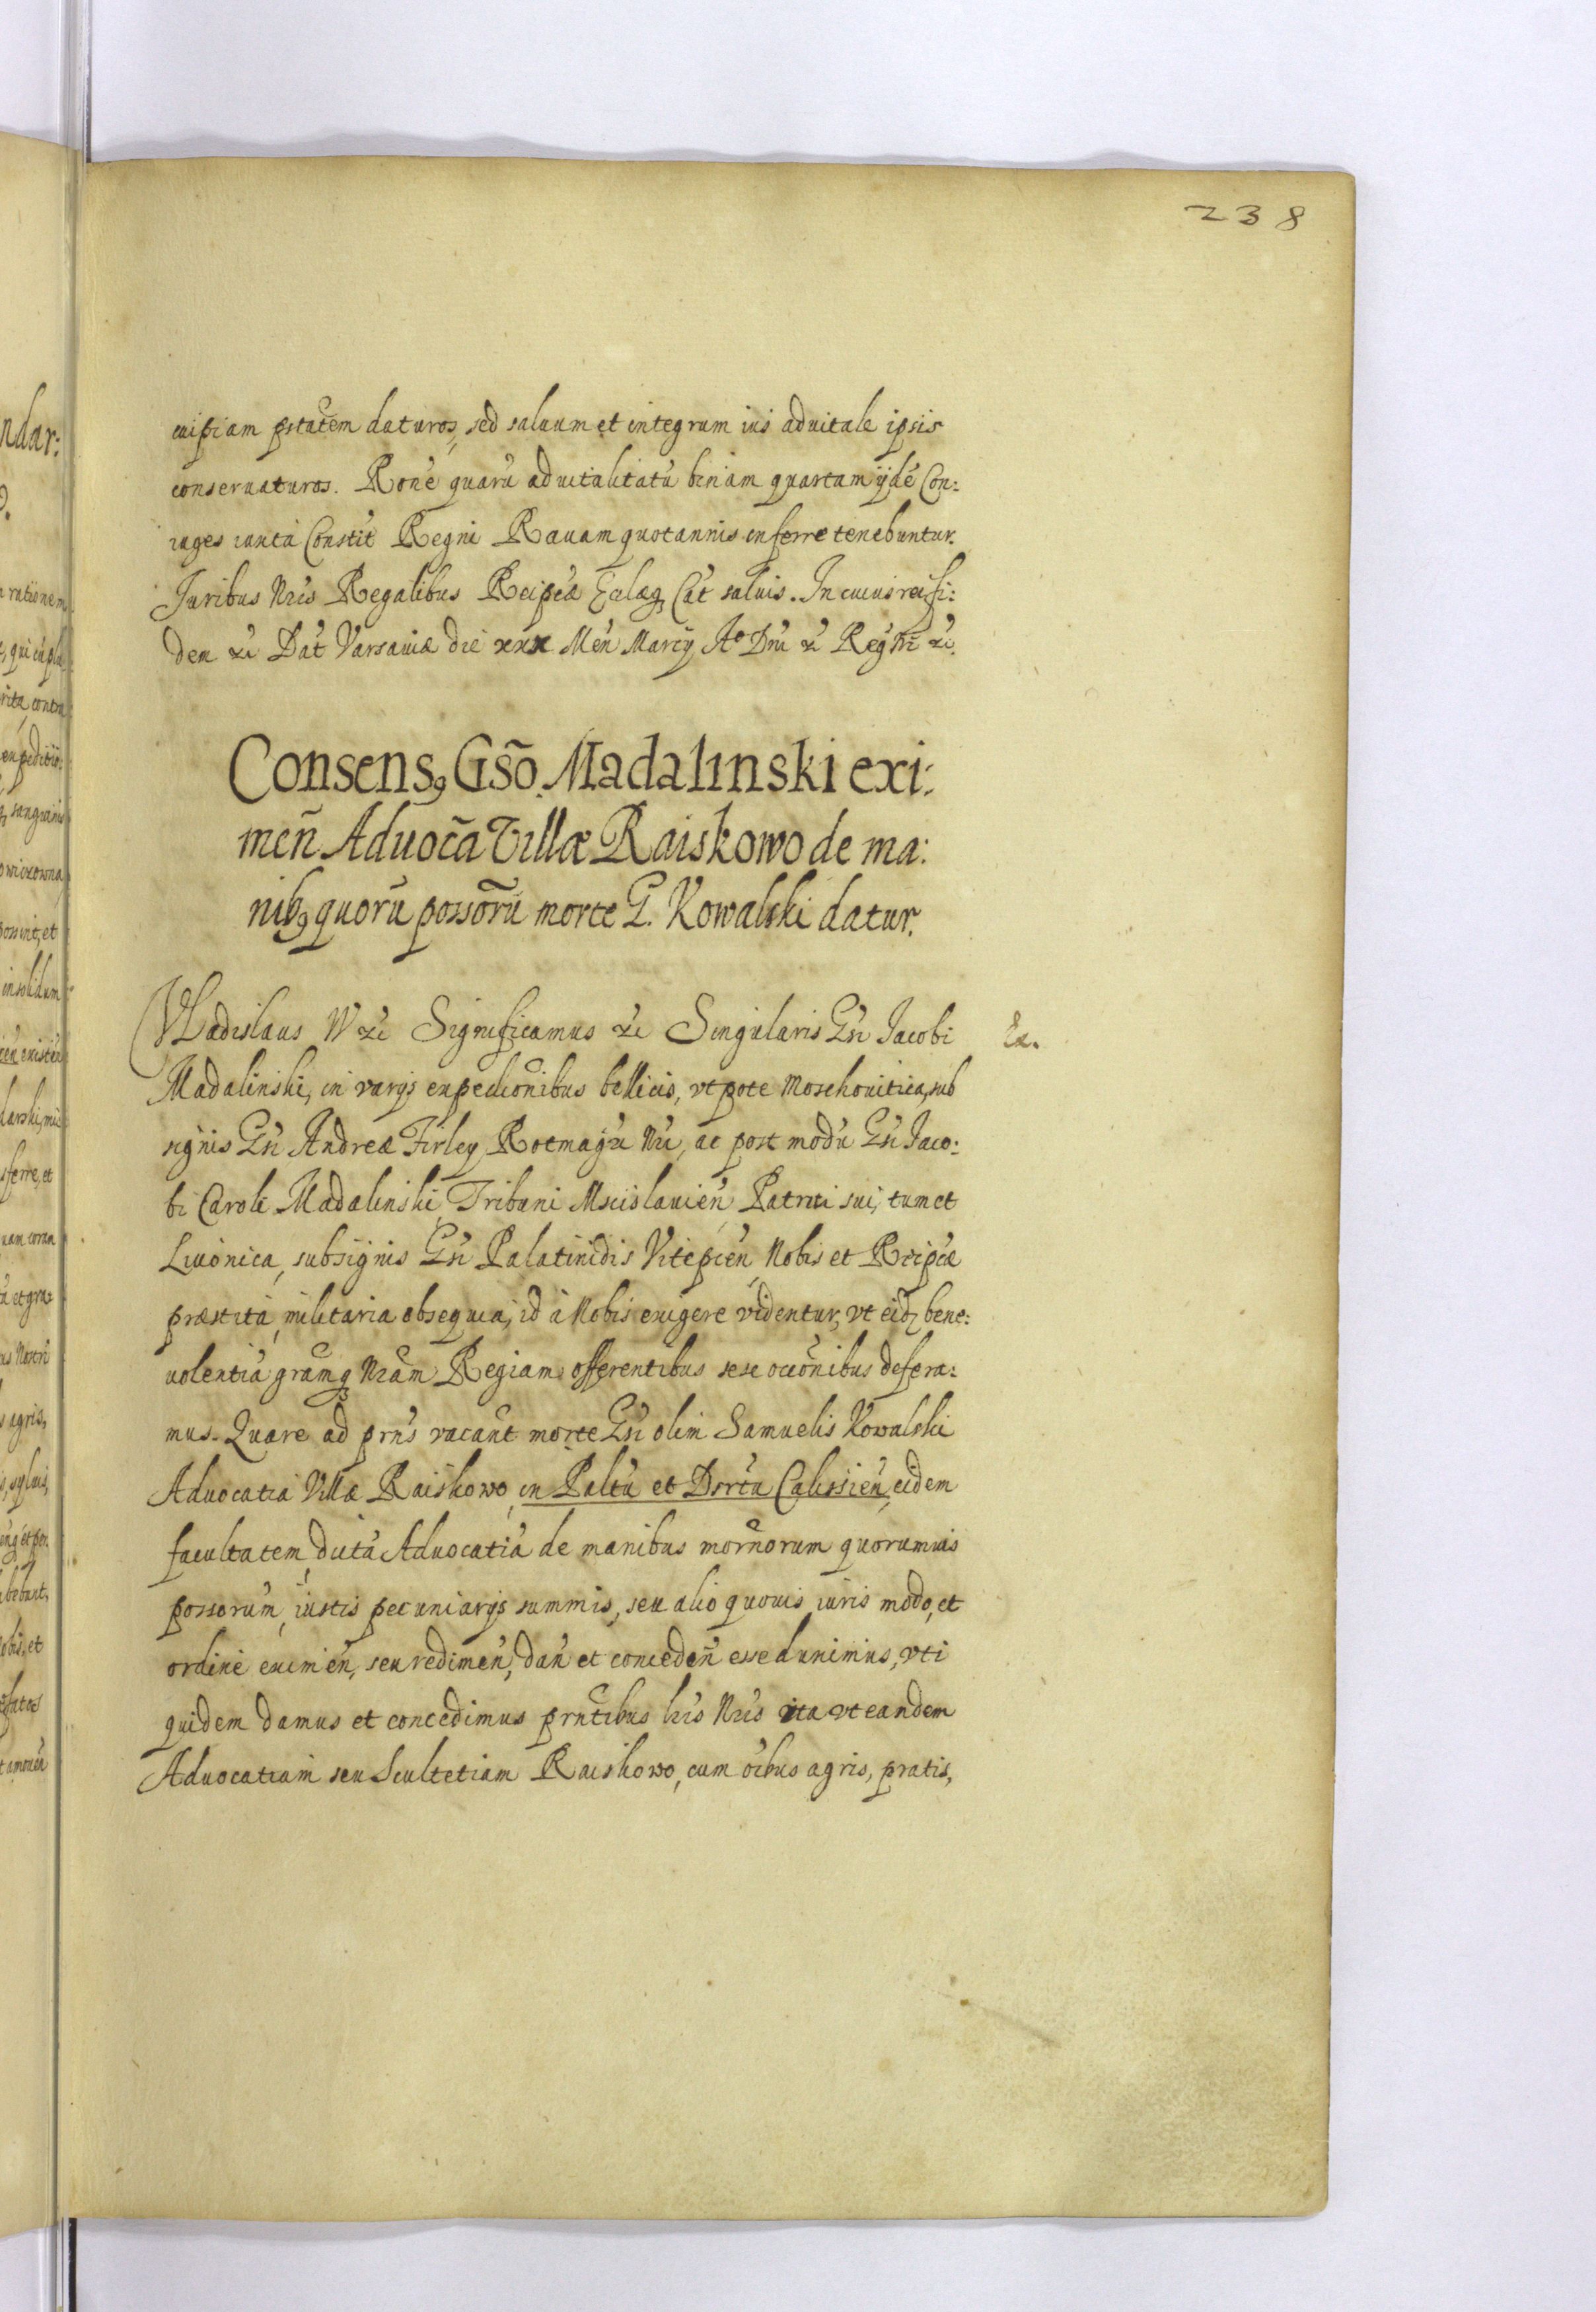 238
cuipiam pstatem daturos, sed saluum et integrum ius aduitale ipsis
conseruaturos. Rone quaru aduitalitatu binam quartam ijde Con:
iuges iuxta Constit Regni Rauam quotannis inferre tenebuntur.
Juribus Nris Regalibus Reipcæ Eclæq Cat saluis. In cuius rei fi:
dem &c Dat Varsauiæ die xxx Men Marcij Ao Dni &c Regni &c.
Consens9 Gso Madalinski exi:
men Aduoca Villæ Raiskowo de ma:
nib9 quoru possoru morte G. Kowalski datur.
VLadislaus IV &c Significamus &c Singularis Gsi Jacobi
Ex.
Madalinski, in varijs expedionibus bellicis, vtpote Moschouitica, sub
signis Gsi Andreæ Firley Rotmagri Nri, ac post modu Gsi Jaco:
bi Caroli Madalinski Tribuni Mscislauien Patrui sui, tum et
Liuonica, sub signis Gsi Palatinidis Vitepscien, Nobis et Reipcæ
præstita, militaria obsequia, id à Nobis exigere videntur, vt eid bene:
uolentia gramq Nram Regiam offerentibus sese occonibus defera:
mus. Quare ad prns vacant morte Gsi olim Samuelis Kowalski
Aduocatia Villæ Raiskowo, in Paltu et Dsrtu Calissien, eidem
facultatem dicta Aduocatia de manibus mornorum quorumuis
possorum, iustis pecuniarijs summis, seu alio quouis iuris modo, et
ordine eximen, seu redimen, dan et conceden esse duximus, vti
quidem damus et concedimus prntibus lris Nris ita vt eandem
Aduocatiam seu Scultetiam Raiskowo, cum oibus agris, pratis,